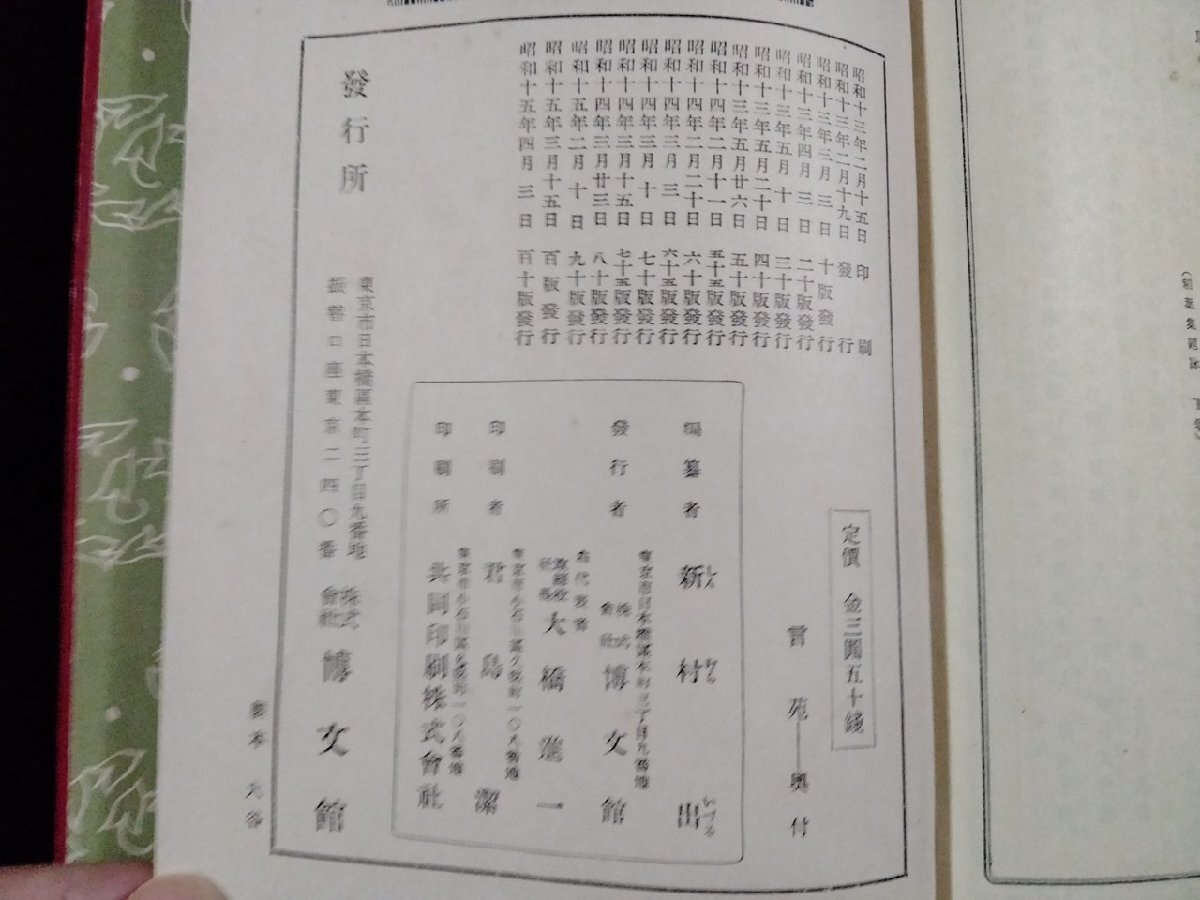 昭和十三年二月十五日 印刷
昭和十三年二月十九日 發行
昭和十三年三月三日 十版發行
昭和十三年四月三日 二十版發行
昭和十三年五月十日 三十版發行
昭和十三年五月二十日 四十版發行
昭和十三年五月廿六日 五十版發行
昭和十四年二月十一日 五十五版發行
昭和十四年二月二十日 六十版發行
昭和十四年三月三日 六十五版發行
昭和十四年三月十日 七十版發行
昭和十四年三月十五日 七十五版發行
昭和十四年三月廿三日 八十版發行
昭和十五年二月十日 九十版發行
昭和十五年三月十五日 百版發行
昭和十五年四月三日 百十版發行
定價 金三圓五十錢
言苑――奥付
編纂者 新村出
東京市日本橋區本町三丁目九番地
發行者 株式會社 博文館
右代表者
取締役社長 大橋進一
印刷者 君島潔
印刷所 共同印刷株式會社
發行所
東京市日本橋區本町三丁目九番地
振替口座東京二四〇番
株式會社 博文館
製本 大谷